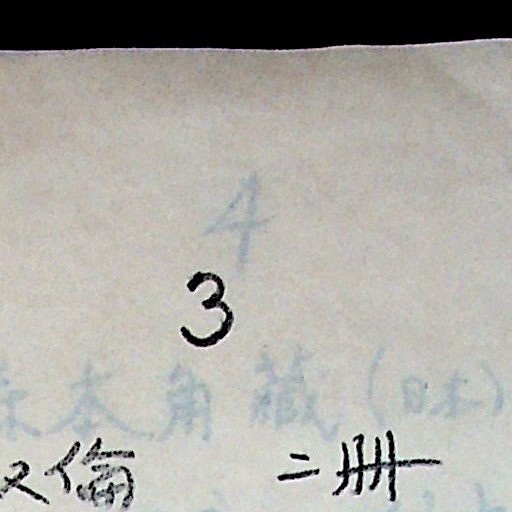 4
3
本角藏（日本）
又倫 二冊